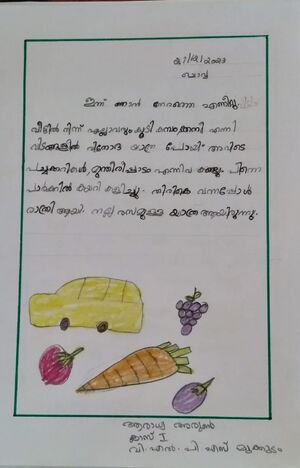 ചൊവ്വ
ഇന്ന് ഞാൻ നേരത്തെ എണീറ്റു.
വീട്ടിൽ നിന്ന് എല്ലാവരും കൂടി കമ്പം, തേനി എന്നീ
വിടങ്ങളിൽ വിനോദ യാത്ര പോയി. അവിടെ
പച്ചക്കറികൾ, മുന്തിരിപ്പാടം എന്നിവ കണ്ടു. പിന്നെ
പാർക്കിൽ കയറി കളിച്ചു. തിരികെ വന്നപ്പോൾ
രാത്രി ആയി. നല്ല രസമുള്ള യാത്ര ആയിരുന്നു.
ആരാധ്യ അരുൺ
ക്ലാസ് I
വി. എൻ. പി എസ്